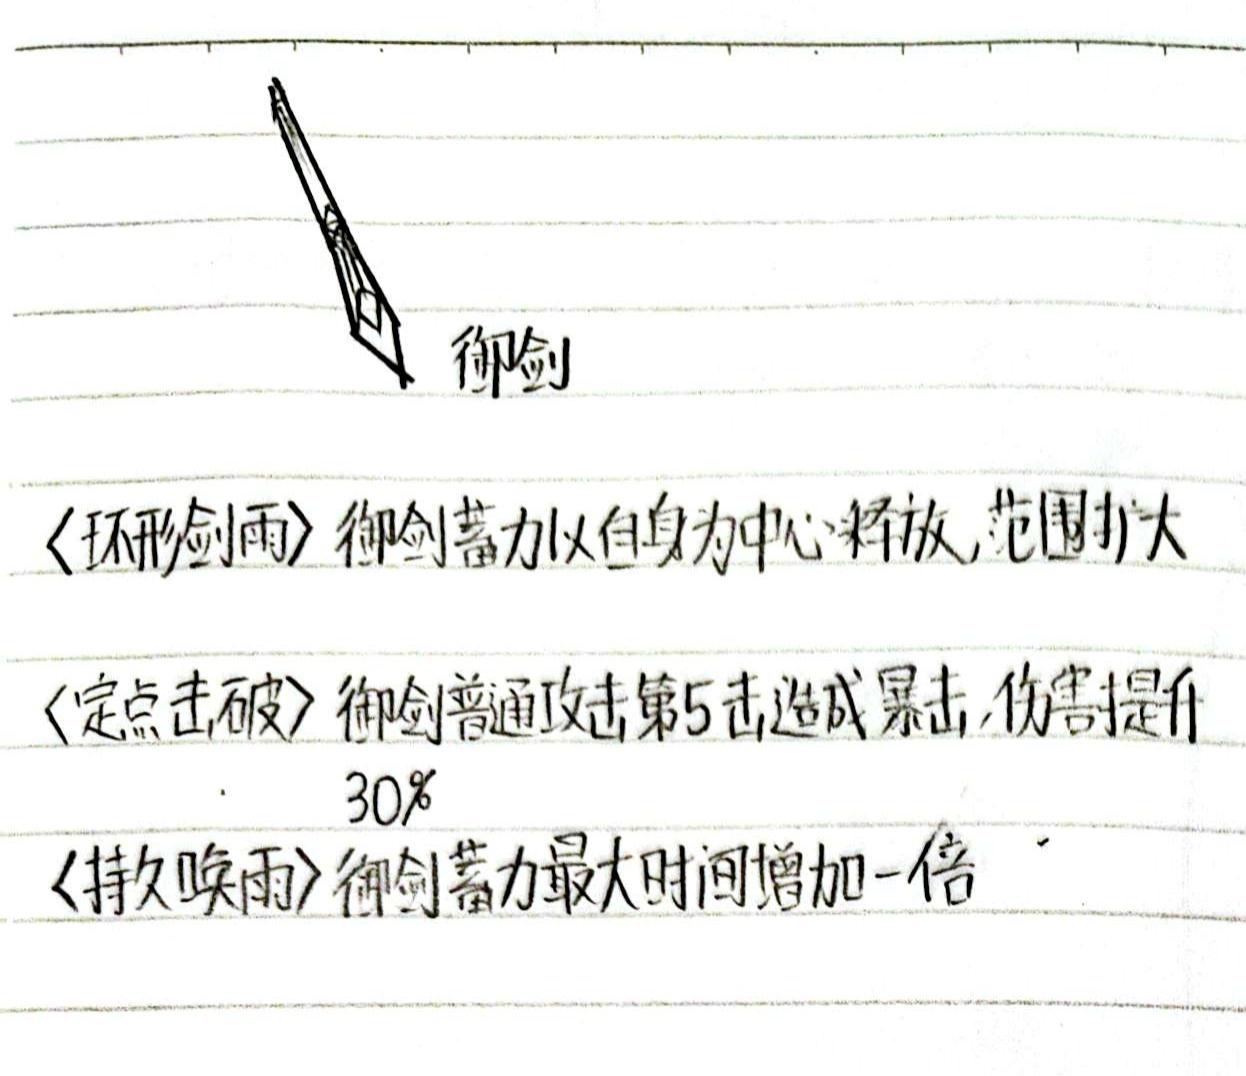 御剑
〈环形剑雨〉御剑蓄力以自身为中心释放,范围扩大
〈定点击破〉御剑普通攻击第5击造成暴击,伤害提升
30%
〈持久唤雨〉御剑蓄力最大时间增加一倍